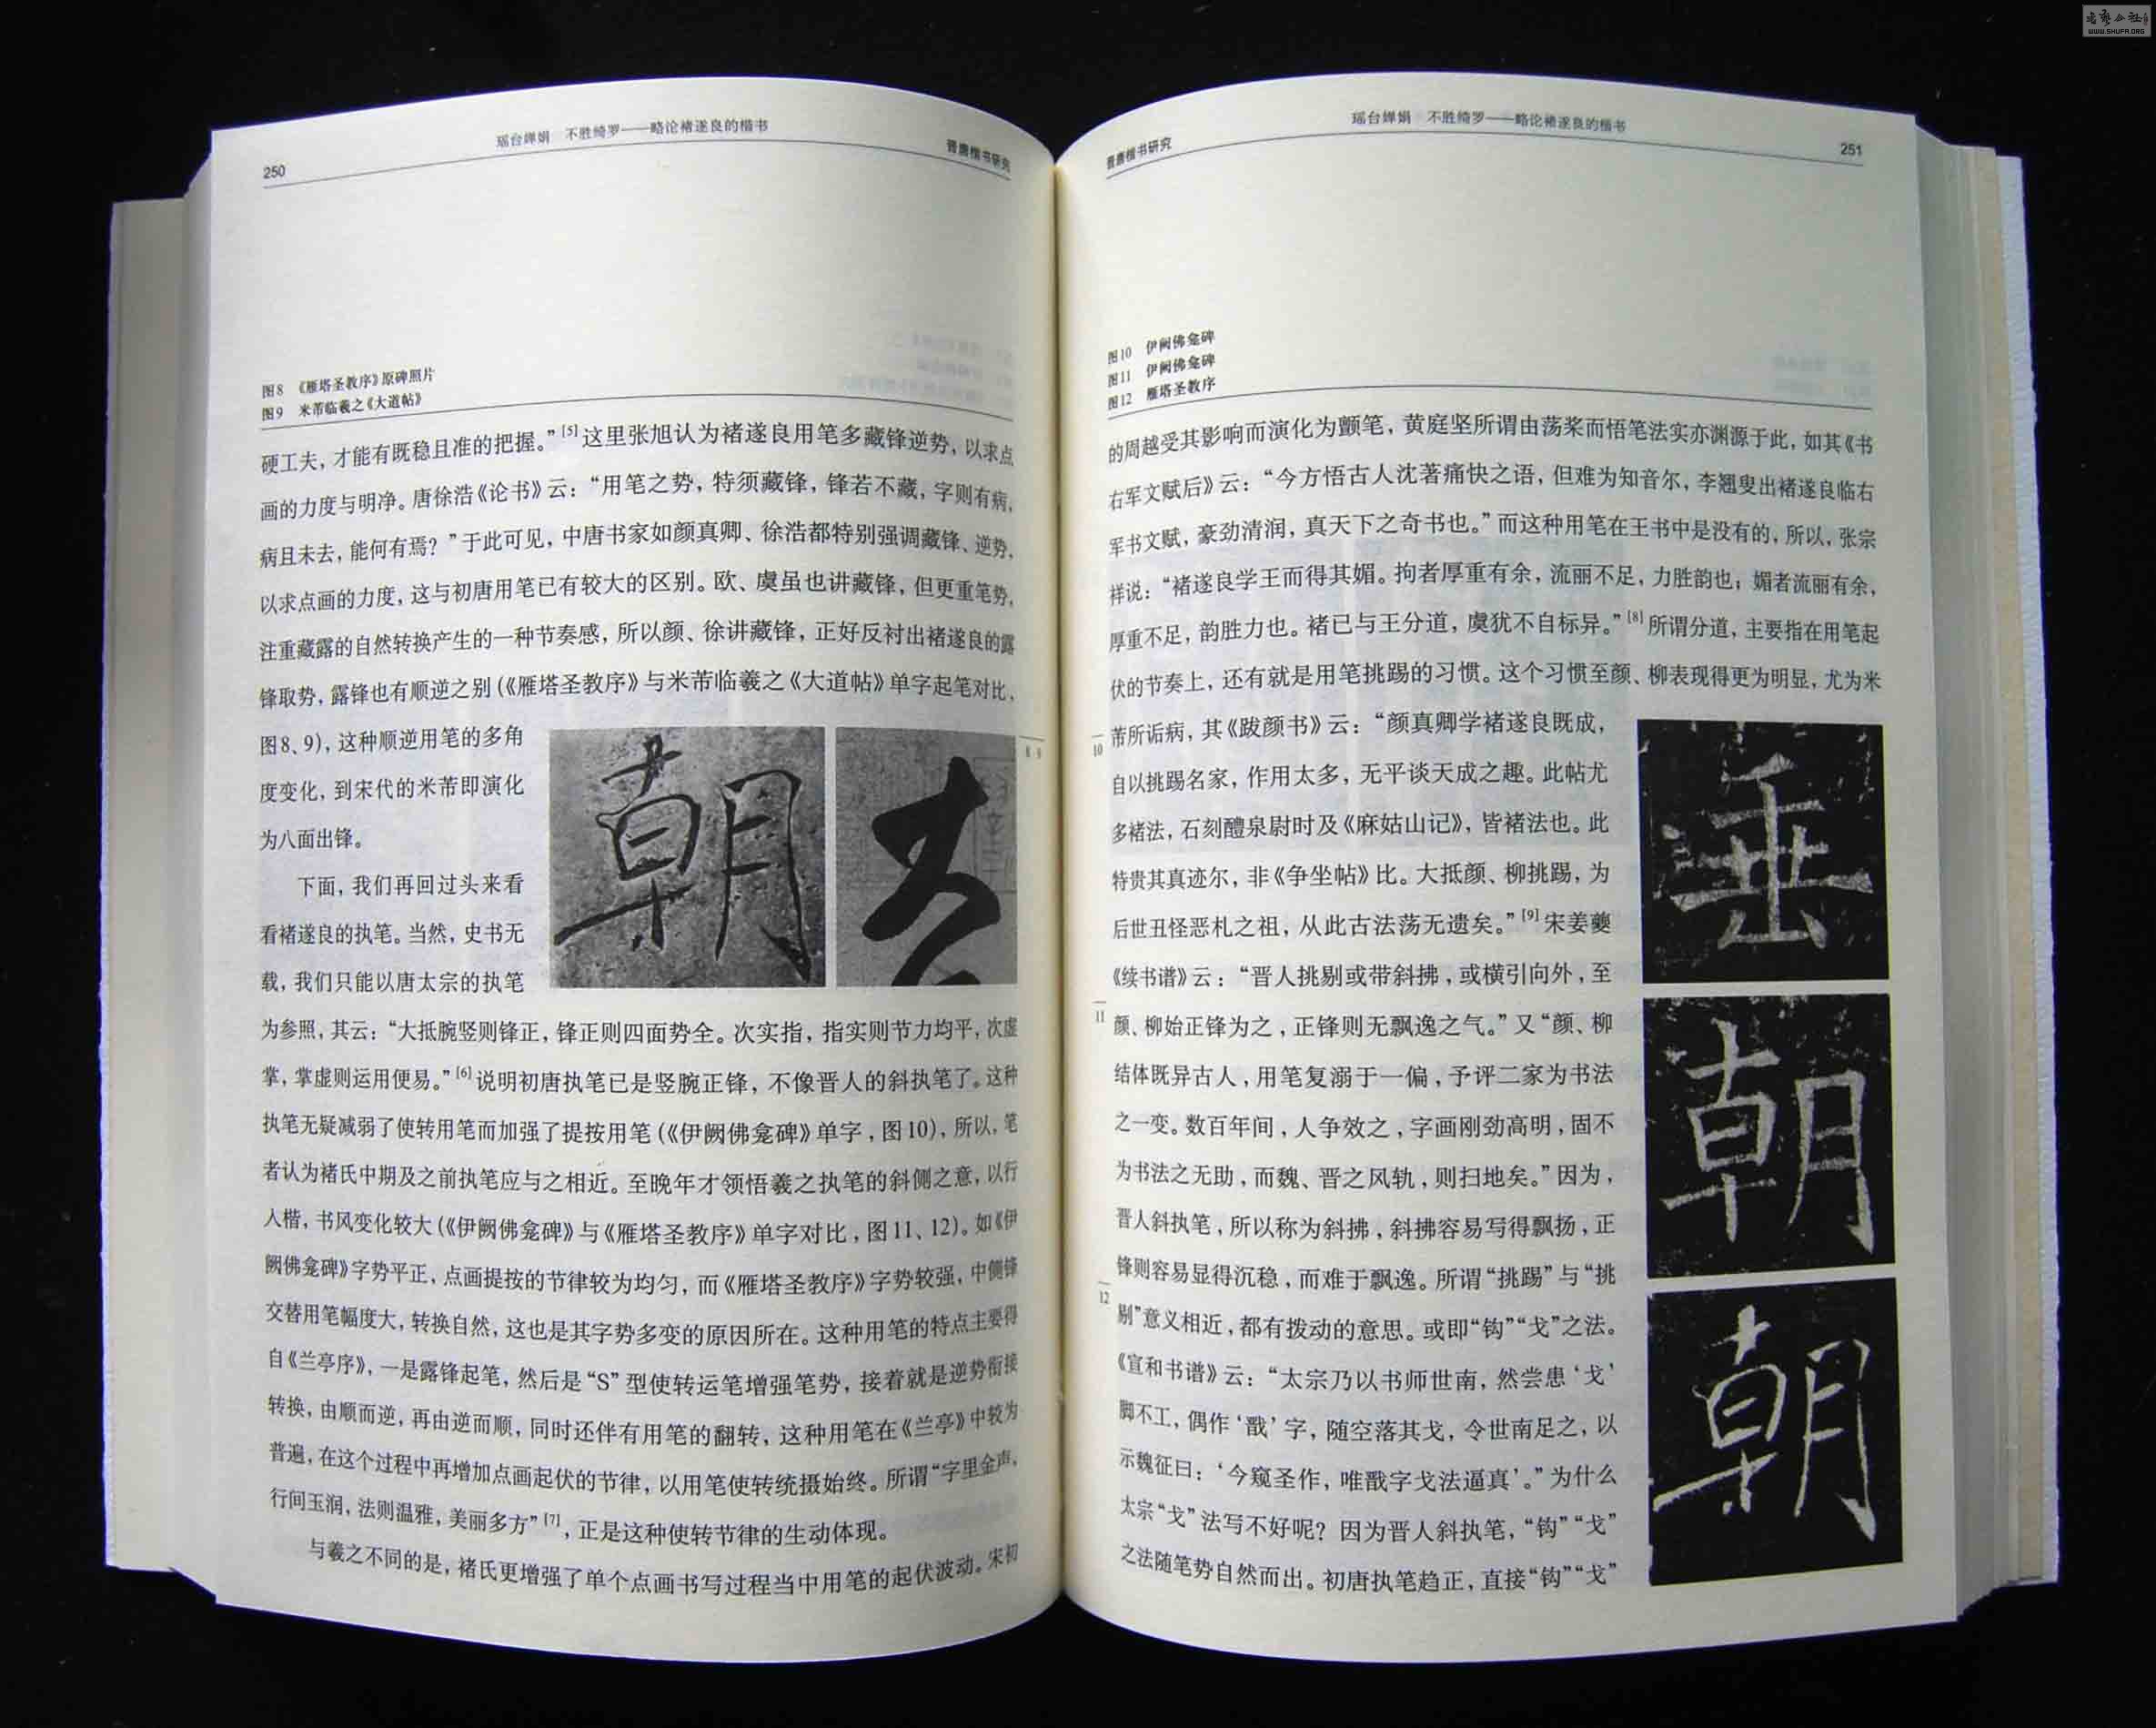 250
瑶台婵娟　不胜绮罗——略论褚遂良的楷书
晋唐楷书研究
图8　《雁塔圣教序》原碑照片
图9　米芾临羲之《大道帖》
硬工夫，才能有既稳且准的把握。”[5]这里张旭认为褚遂良用笔多藏锋逆势，以求点
画的力度与明净。唐徐浩《论书》云：“用笔之势，特须藏锋，锋若不藏，字则有病，
病且未去，能何有焉？”于此可见，中唐书家如颜真卿、徐浩都特别强调藏锋、逆势，
以求点画的力度，这与初唐用笔已有较大的区别。欧、虞虽也讲藏锋，但更重笔势，
注重藏露的自然转换产生的一种节奏感，所以颜、徐讲藏锋，正好反衬出褚遂良的露
锋取势，露锋也有顺逆之别（《雁塔圣教序》与米芾临羲之《大道帖》单字起笔对比，
图8、9），这种顺逆用笔的多角
度变化，到宋代的米芾即演化
为八面出锋。
下面，我们再回过头来看
看褚遂良的执笔。当然，史书无
载，我们只能以唐太宗的执笔
为参照，其云：“大抵腕竖则锋正，锋正则四面势全。次实指，指实则节力均平，次虚
掌，掌虚则运用便易。”[6]说明初唐执笔已是竖腕正锋，不像晋人的斜执笔了。这种
执笔无疑减弱了使转用笔而加强了提按用笔（《伊阙佛龛碑》单字，图10），所以，笔
者认为褚氏中期及之前执笔应与之相近。至晚年才领悟羲之执笔的斜侧之意，以行
入楷，书风变化较大（《伊阙佛龛碑》与《雁塔圣教序》单字对比，图11、12）。如《伊
阙佛龛碑》字势平正，点画提按的节律较为均匀，而《雁塔圣教序》字势较强，中侧锋
交替用笔幅度大，转换自然，这也是其字势多变的原因所在。这种用笔的特点主要得
自《兰亭序》，一是露锋起笔，然后是“S”型使转运笔增强笔势，接着就是逆势衔接
转换，由顺而逆，再由逆而顺，同时还伴有用笔的翻转，这种用笔在《兰亭》中较为
普遍，在这个过程中再增加点画起伏的节律，以用笔使转统摄始终。所谓“字里金声，
行间玉润，法则温雅，美丽多方”[7]，正是这种使转节律的生动体现。
与羲之不同的是，褚氏更增强了单个点画书写过程当中用笔的起伏波动。宋初
朝
8 9
晋唐楷书研究
瑶台婵娟　不胜绮罗——略论褚遂良的楷书
251
图10　伊阙佛龛碑
图11　伊阙佛龛碑
图12　雁塔圣教序
的周越受其影响而演化为颤笔，黄庭坚所谓由荡桨而悟笔法实亦渊源于此，如其《书
右军文赋后》云：“今方悟古人沈著痛快之语，但难为知音尔，李翘叟出褚遂良临右
军书文赋，豪劲清润，真天下之奇书也。”而这种用笔在王书中是没有的，所以，张宗
祥说：“褚遂良学王而得其媚。拘者厚重有余，流丽不足，力胜韵也；媚者流丽有余，
厚重不足，韵胜力也。褚已与王分道，虞犹不自标异。”[8]所谓分道，主要指在用笔起
伏的节奏上，还有就是用笔挑踢的习惯。这个习惯至颜、柳表现得更为明显，尤为米
芾所诟病，其《跋颜书》云：“颜真卿学褚遂良既成，
自以挑踢名家，作用太多，无平谈天成之趣。此帖尤
多褚法，石刻醴泉尉时及《麻姑山记》，皆褚法也。此
特贵其真迹尔，非《争坐帖》比。大抵颜、柳挑踢，为
后世丑怪恶札之祖，从此古法荡无遗矣。”[9]宋姜夔
《续书谱》云：“晋人挑剔或带斜拂，或横引向外，至
颜、柳始正锋为之，正锋则无飘逸之气。”又“颜、柳
结体既异古人，用笔复溺于一偏，予评二家为书法
之一变。数百年间，人争效之，字画刚劲高明，固不
为书法之无助，而魏、晋之风轨，则扫地矣。”因为，
晋人斜执笔，所以称为斜拂，斜拂容易写得飘扬，正
锋则容易显得沉稳，而难于飘逸。所谓“挑踢”与“挑
剔”意义相近，都有拨动的意思。或即“钩”“戈”之法。
《宣和书谱》云：“太宗乃以书师世南，然尝患‘戈’
脚不工，偶作‘戬’字，随空落其戈，令世南足之，以
示魏征曰：‘今窥圣作，唯戬字戈法逼真’。”为什么
太宗“戈”法写不好呢？因为晋人斜执笔，“钩”“戈”
之法随笔势自然而出。初唐执笔趋正，直接“钩”“戈”
10
11
12
垂
朝
朝
WWW.SHUFA.ORG